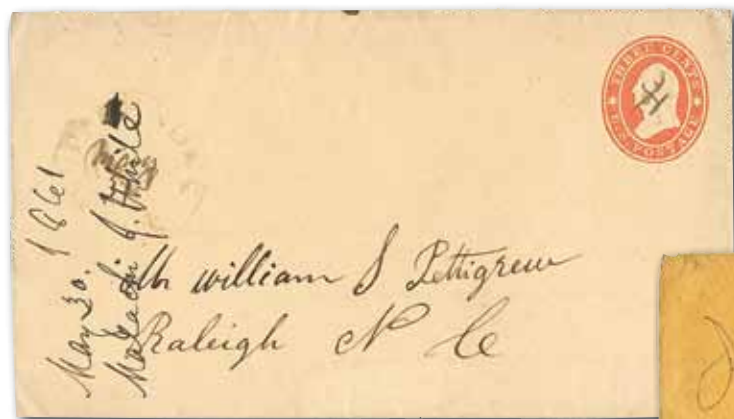 THREE CENTS
U.S. POSTAGE
May 30. 1861
J. White
Mr William S Pettigrew
Raleigh N C